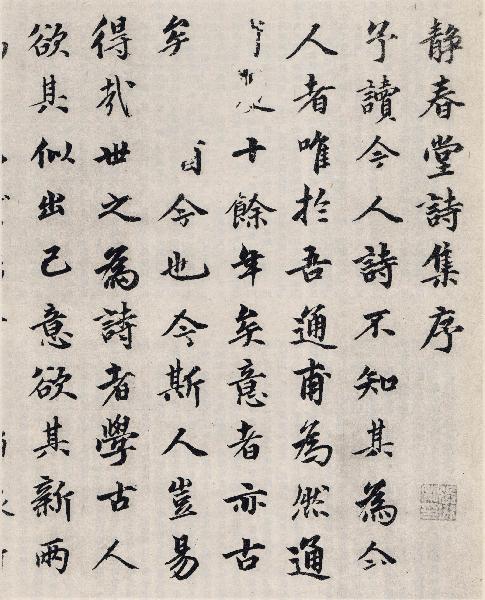 静春堂詩集序
予讀今人詩不知其為今
人者唯於吾通甫為然通
十餘年矣意者亦古
矣今也今斯人豈易
得哉世之為詩者學古人
欲其似出己意欲其新兩